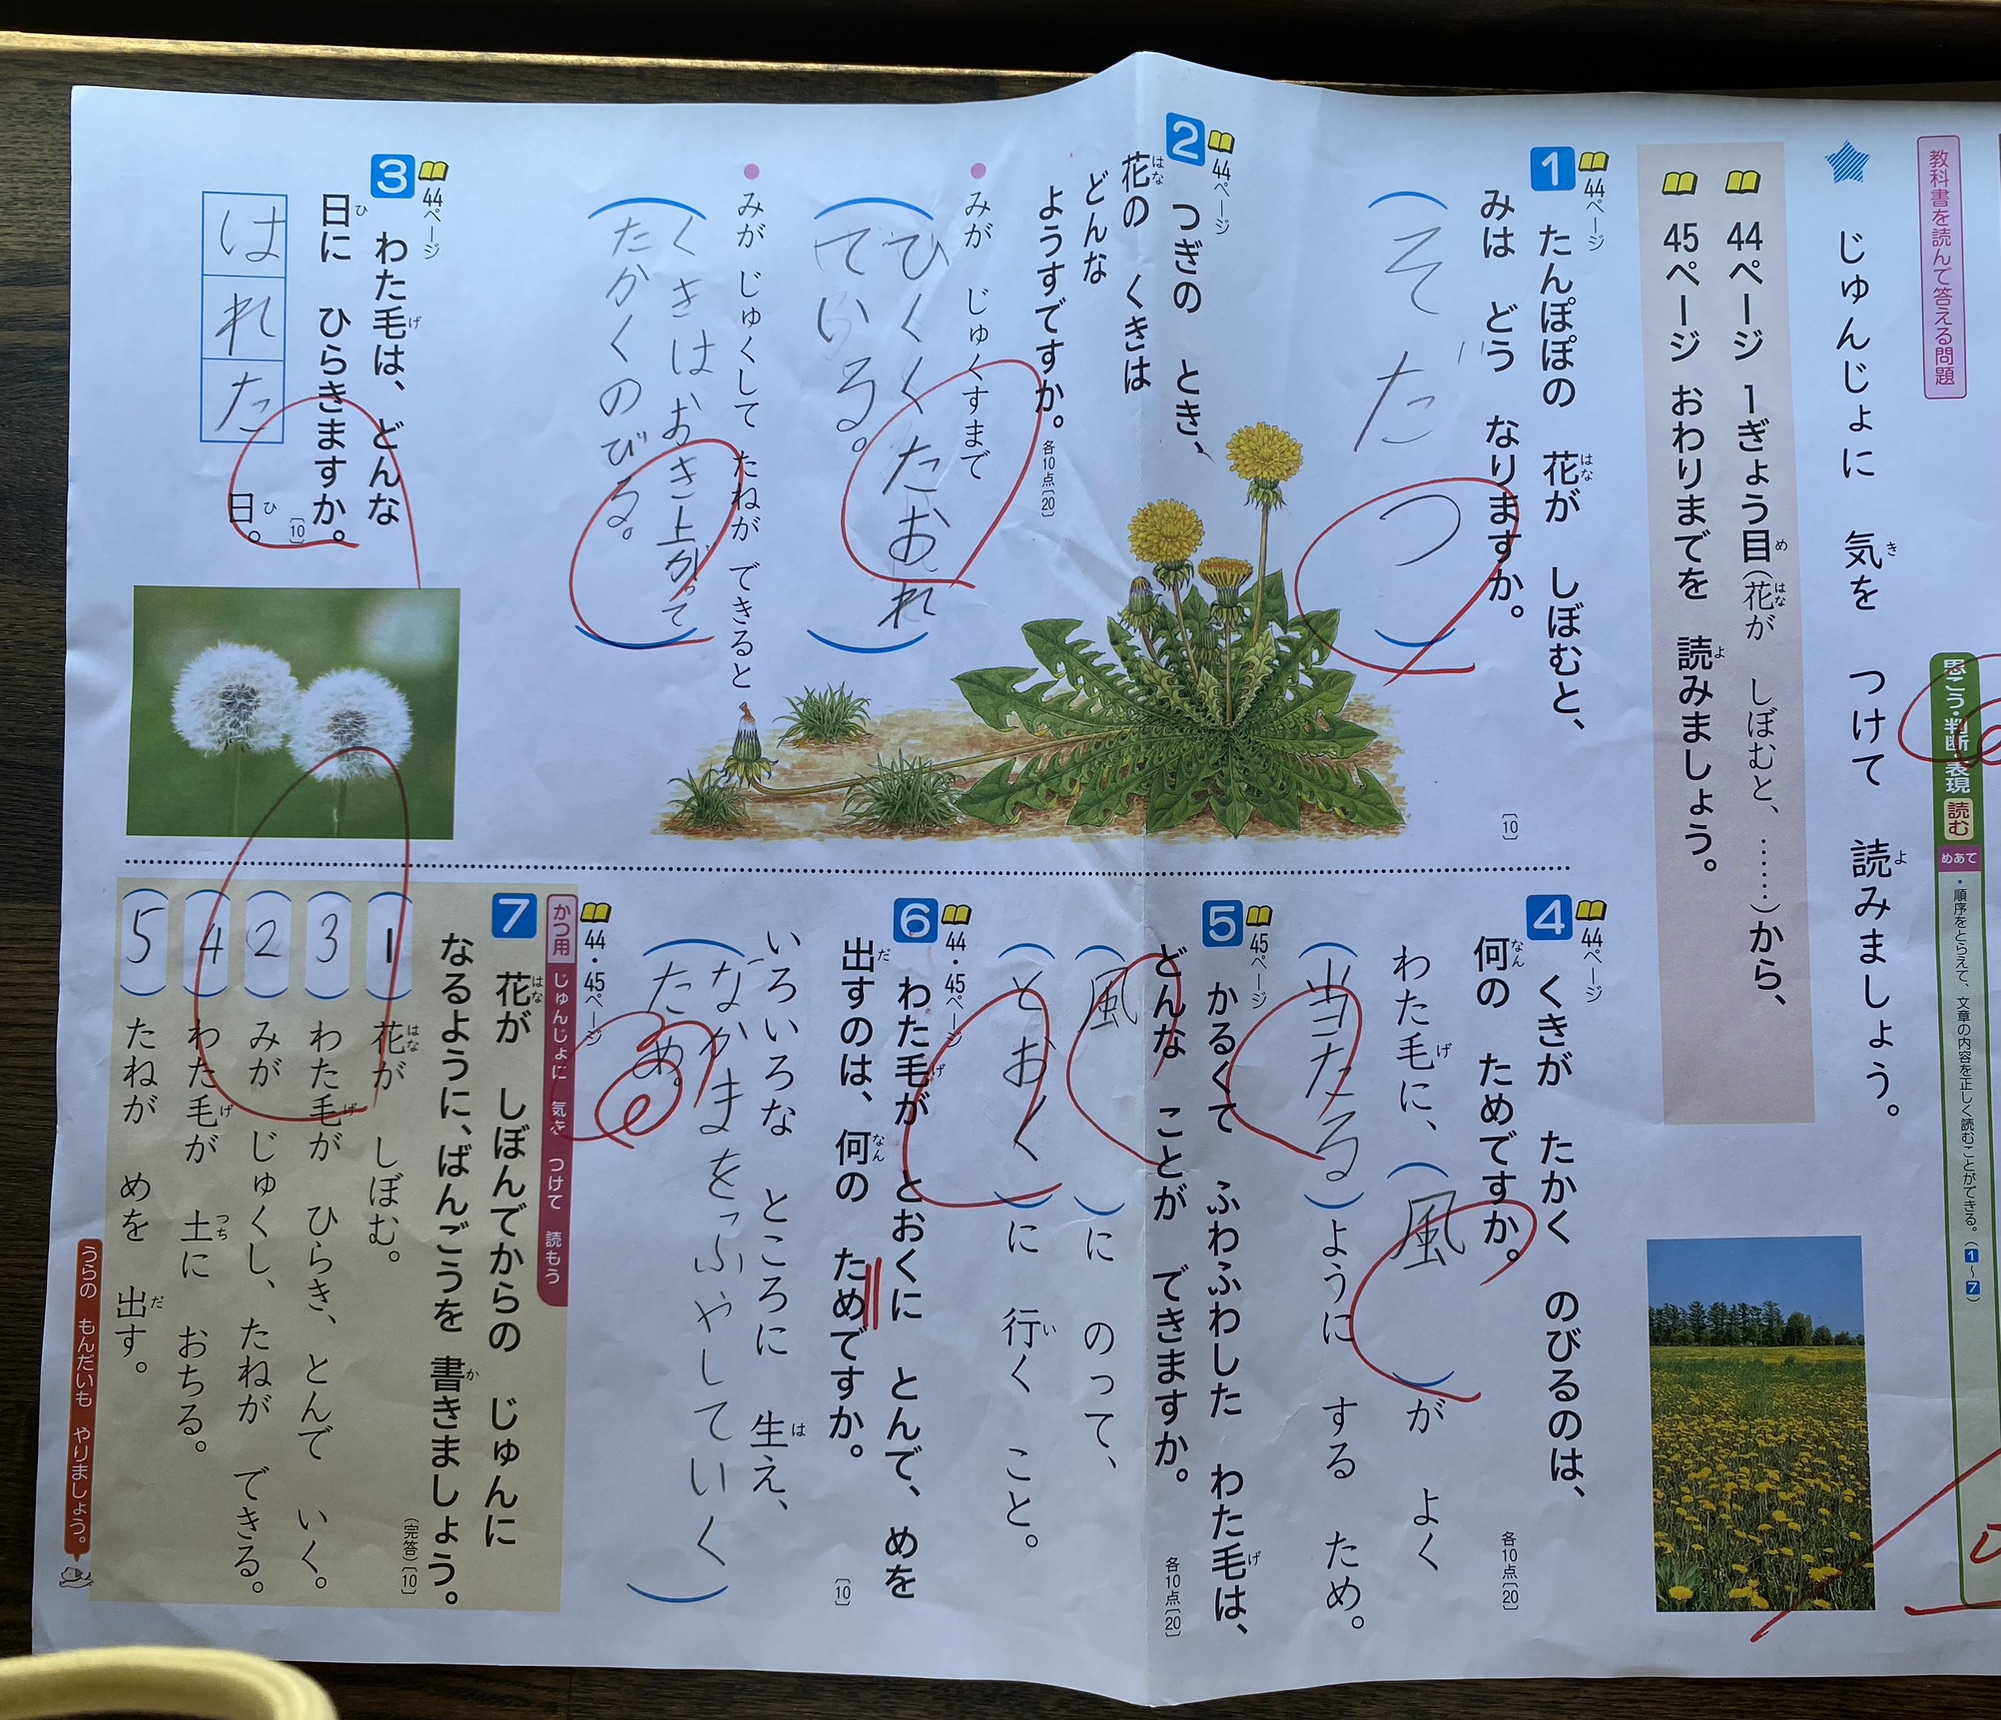 教科書を読んで答える問題
思こう・判断・表現 読む
めあて ・順序をとらえて、文章の内容を正しく読むことができる。(1〜7)
じゅんじょに 気を つけて 読みましょう。
44ページ 1ぎょう目(花が しぼむと、……)から、
45ページ おわりまでを 読みましょう。
44ページ
1 たんぽぽの 花が しぼむと、
みは どう なりますか。
[10]
(そだつ)
44ページ
2 つぎの とき、
花の くきは
どんな
ようすですか。
各10点[20]
みが じゅくすまで
(ひくくたおれ
ている。)
みが じゅくして たねが できると
(くきはおき上がって
たかくのびる。)
44ページ
3 わた毛は、どんな
日に ひらきますか。
[10]
はれた日。
44ページ
4 くきが たかく のびるのは、
何の ためですか。
各10点[20]
わた毛に、(風)が よく
(当たる)ように する ため。
45ページ
5 かるくて ふわふわした わた毛は、
どんな ことが できますか。
各10点[20]
(風)に のって、
(とおく)に 行く こと。
44・45ページ
6 わた毛が とおくに とんで、めを
出すのは、何の ためですか。
[10]
いろいろな ところに 生え、
(なかまをふやしていく
ため。)
44・45ページ
かつ用 じゅんじょに 気を つけて 読もう
7 花が しぼんでからの じゅんに
なるように、ばんごうを 書きましょう。
(完答)[10]
(1) 花が しぼむ。
(3) わた毛が ひらき、とんで いく。
(2) みが じゅくし、たねが できる。
(4) わた毛が 土に おちる。
(5) たねが めを 出す。
うらの もんだいも やりましょう。